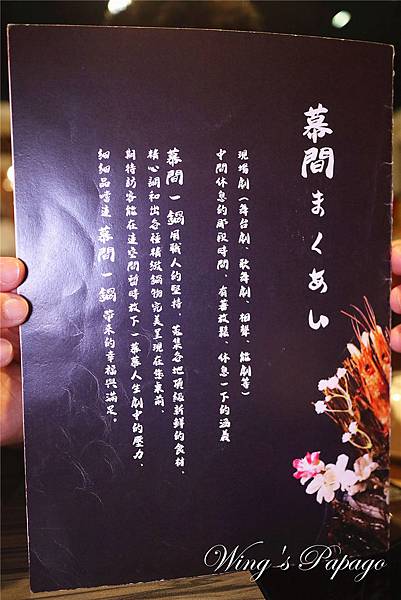 幕間 まくあい
現場劇（舞台劇、歌舞劇、相聲、能劇等）
中間休息的那段時間，有著放鬆、休息一下的涵義
幕間一鍋用職人的堅持，蒐集各地頂級新鮮的食材，
精心調和出各種精緻鍋物完美呈現在您桌前，
期待訪客能在這空間暫時放下一幕幕人生劇中的壓力，
細細品嚐這 幕間一鍋 帶來的幸福與滿足。
Wing's Papago